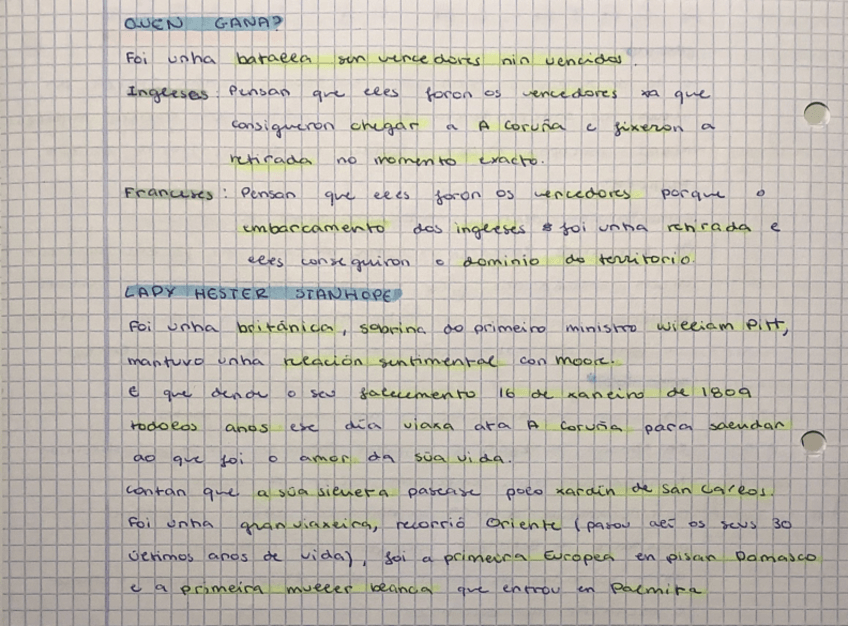 QUEN GANA?
Foi unha batalla sen vencedores nin vencidos.
Ingleses: Pensan que eles foron os vencedores xa que
consigueron chegar a A Coruña e fixeron a
retirada no momento exacto.
Franceses: Pensan que eles foron os vencedores porque o
embarcamento dos ingleses foi unha retirada e
eles conseguiron o dominio do territorio.
LADY HESTER STANHOPE
Foi unha británica, sobrina do primeiro ministro William Pitt,
mantuvo unha relación sentimental con Moore.
E que dende o seu falecemento 16 de xaneiro de 1809
todolos anos ese día viaxa ata A Coruña para saudar
ao que foi o amor da súa vida.
Contan que a súa silueta pasease polo xardín de San Carlos.
Foi unha gran viaxeira, recorrió Oriente (pasou alí os seus 30
últimos anos de vida), foi a primeira Europea en pisar Damasco
e a primeira muller blanca que entrou en Palmira